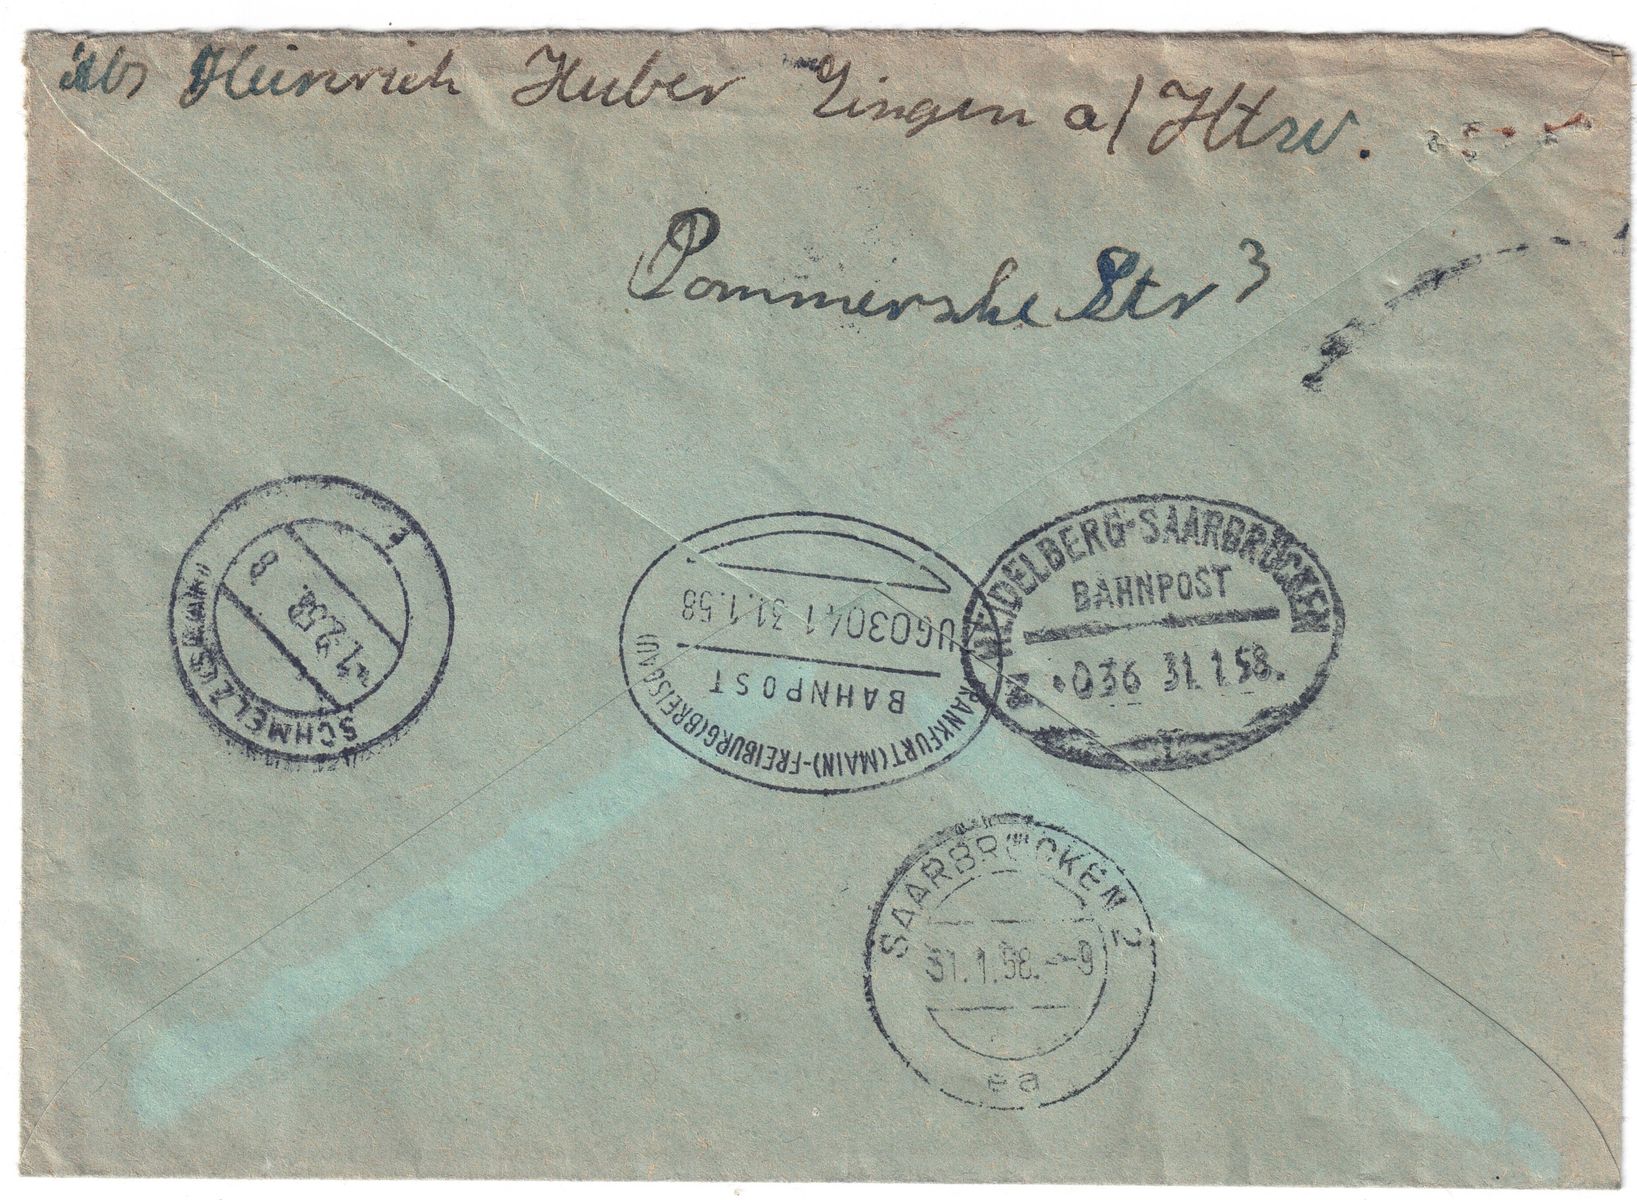 Abs Heinrich Huber Singen a/Htw.
Pommershe Str 3
SCHMELZ (SAAR)
-1.2.58. 8
FRANKFURT (MAIN)-FREIBURG (BREISGAU)
BAHNPOST
ZUG03041 31.1.58
HEIDELBERG-SAARBRÜCKEN
BAHNPOST
Z ·036 31.1.58.
SAARBRÜCKEN 2
31.1.58.--9
ea